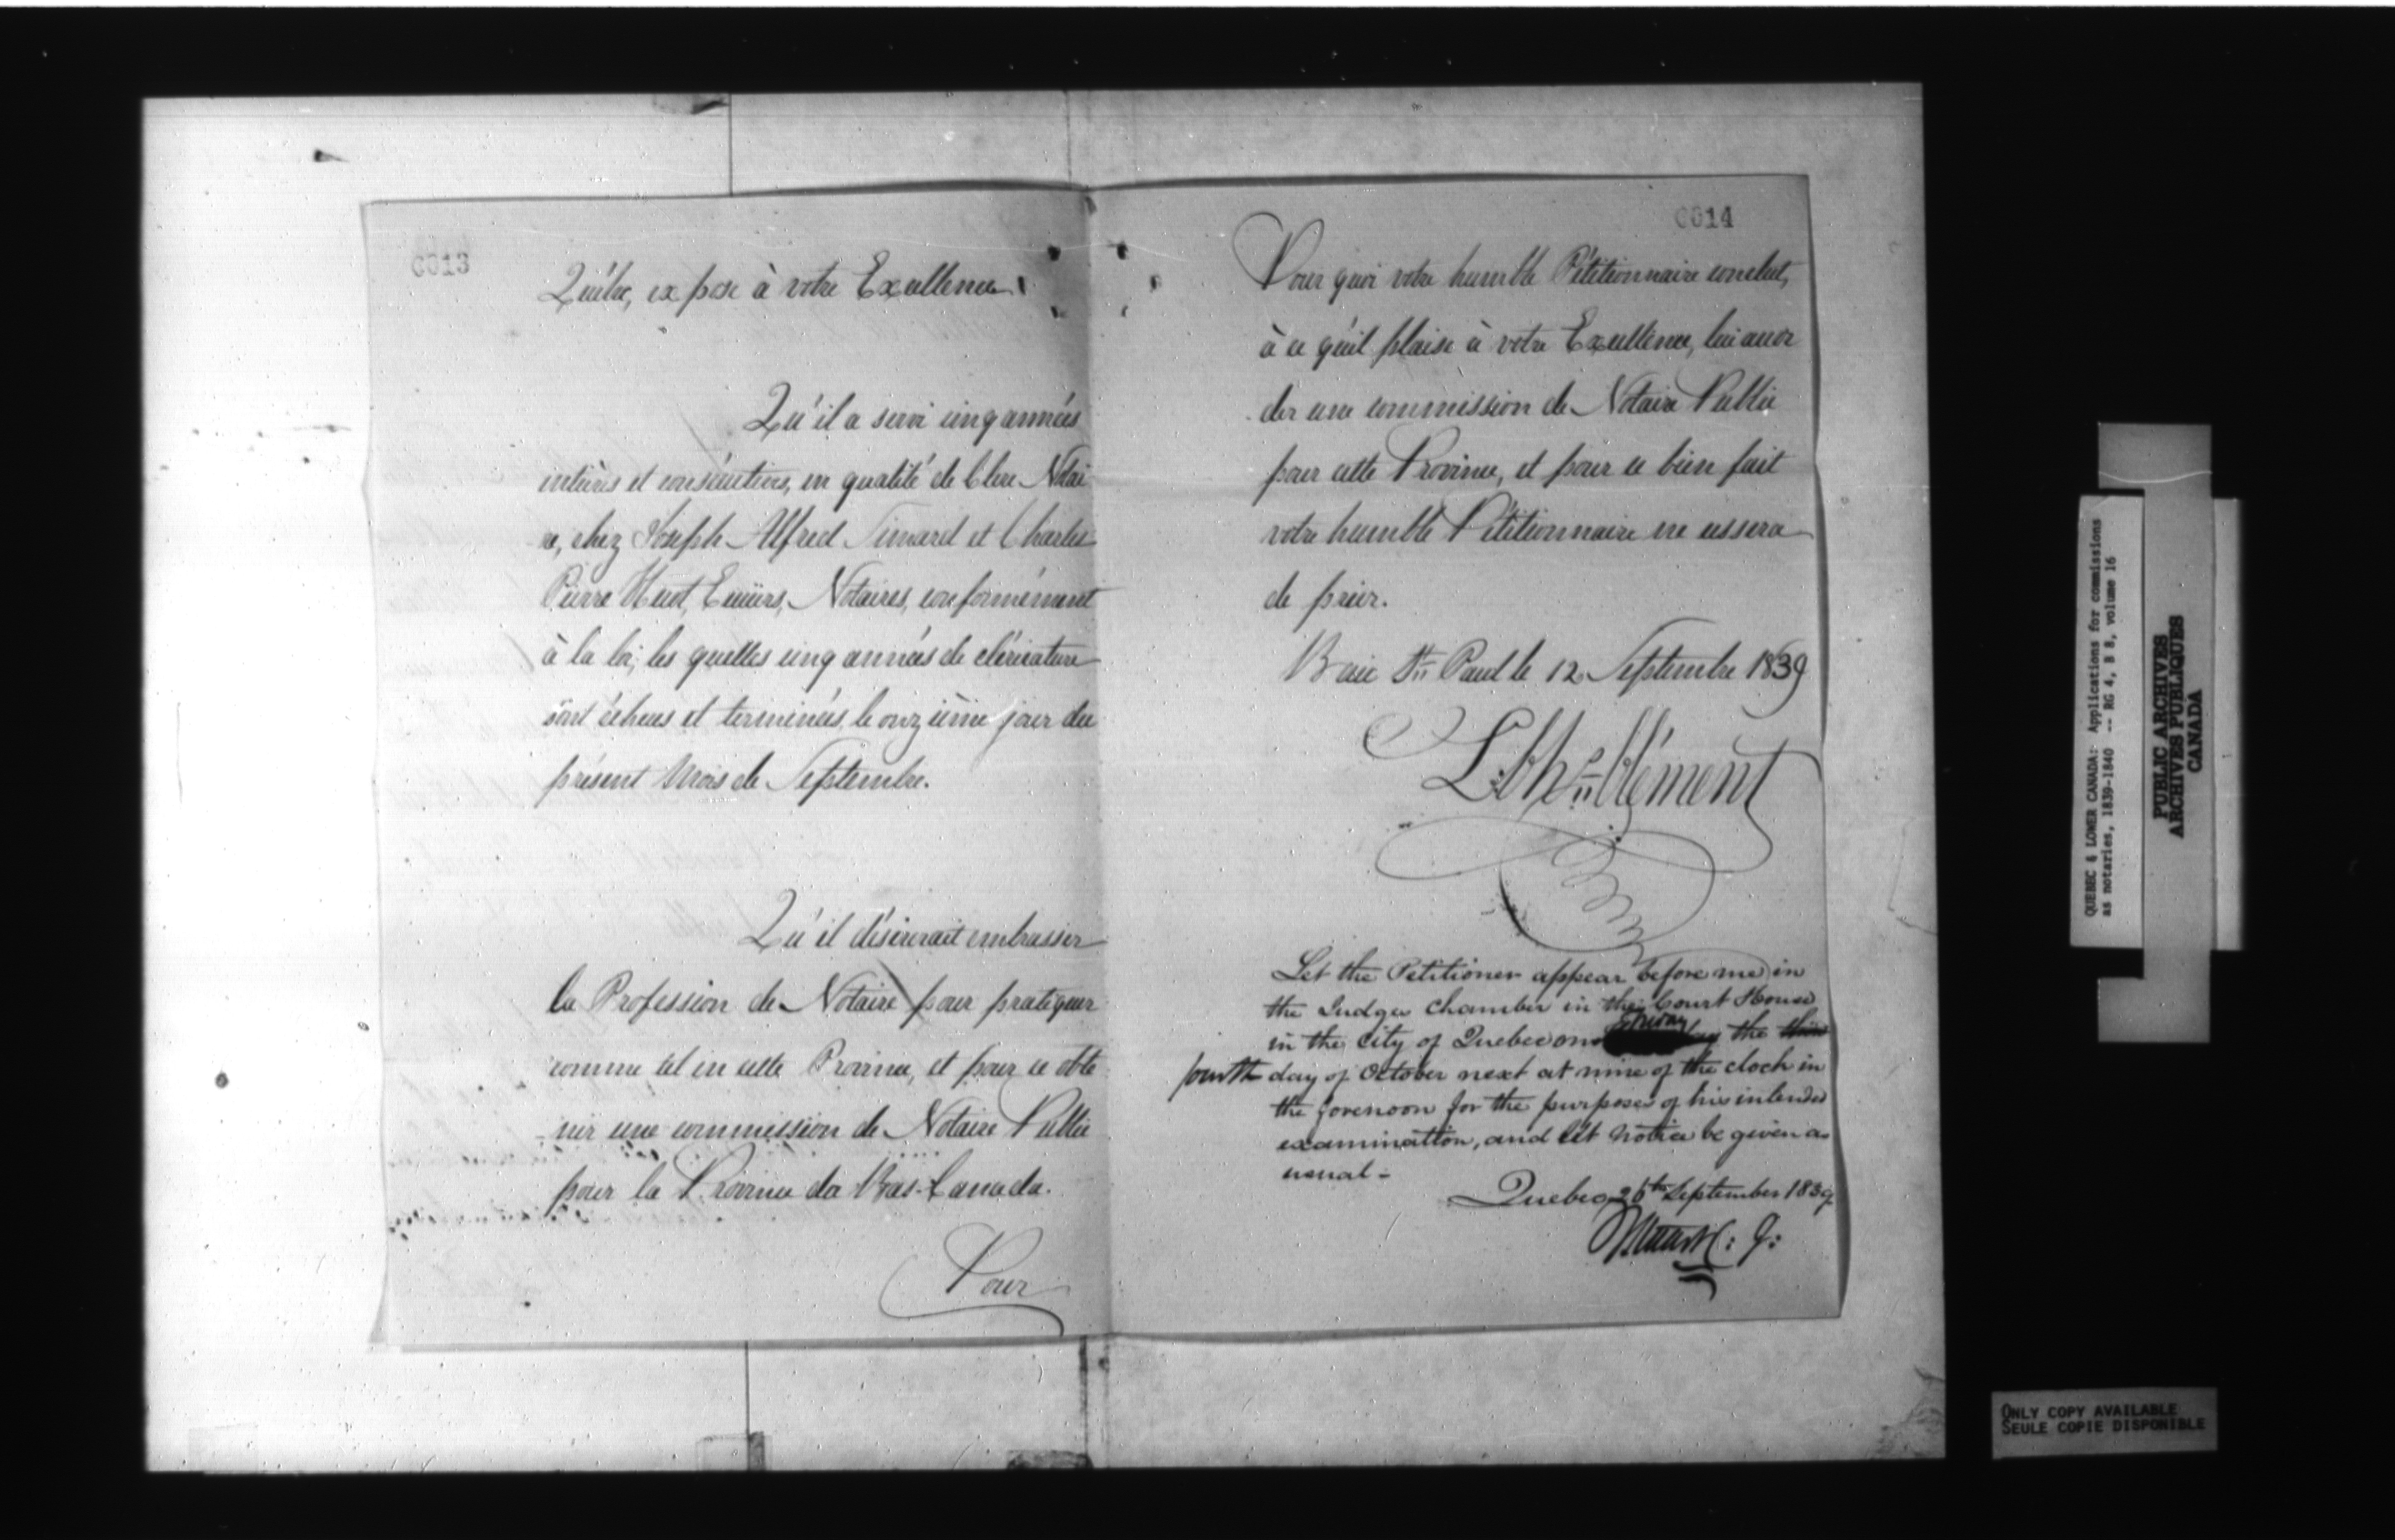 G013
Québec, expose à votre Excellence
Qu'il a servi cinq années
entières et consécutives, en qualité de Clerc Notai
re, chez Joseph Alfred Simard et Charles
Pierre Huot, Ecuiers, Notaires, conformément
à la loi; les quelles cinq années de cléricature
sont échues et terminées le onzième jour du
présent Mois de Septembre.
Qu'il désirerait embrasser
la Profession de Notaire pour pratiquer
comme tel en cette Province, et pour ce obte
nir une commission de Notaire Public
pour la Province du Bas-Canada.
Pour
G014
Pour quoi votre humble Pétitionnaire conclut,
à ce qu'il plaise à votre Excellence, lui accor
der une commission de Notaire Public
pour cette Province, et pour ce bien fait
votre humble Pétitionnaire ne cessera
de prier.
Baie St. Paul le 12 Septembre 1839
Clément
Let the Petitioner appear before me in
the Judges chamber in the Court House
in the City of Quebec on Friday the
fourth day of October next at nine of the clock in
the forenoon for the purposes of his intended
examination, and let notice be given as
usual -
Quebec 26th September 1839
J:
QUEBEC & LOWER CANADA: Applications for commissions
as notaries, 1839-1840 -- RG 4, B 8, volume 16
PUBLIC ARCHIVES
ARCHIVES PUBLIQUES
CANADA
ONLY COPY AVAILABLE
SEULE COPIE DISPONIBLE